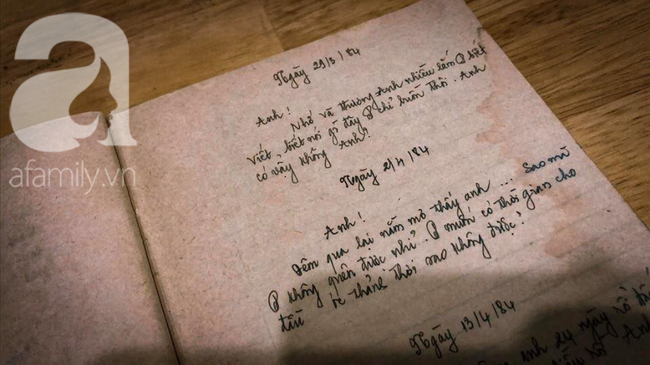 Ngày 29/3/84
Anh!
Nhớ và thương Anh nhiều lắm P biết
viết, biết nói gì đây P chỉ buồn thôi. Anh
có vậy không Anh?
Ngày 2/4/84
Anh!
Đêm qua lại nằm mơ thấy anh ... Sao mà
P không quên được nhỉ. P muốn có thời gian cho
tim thảnh thơi sao không được?
Ngày 13/4/84
anh 24 ngày rồ
Anh
a
afamily.vn